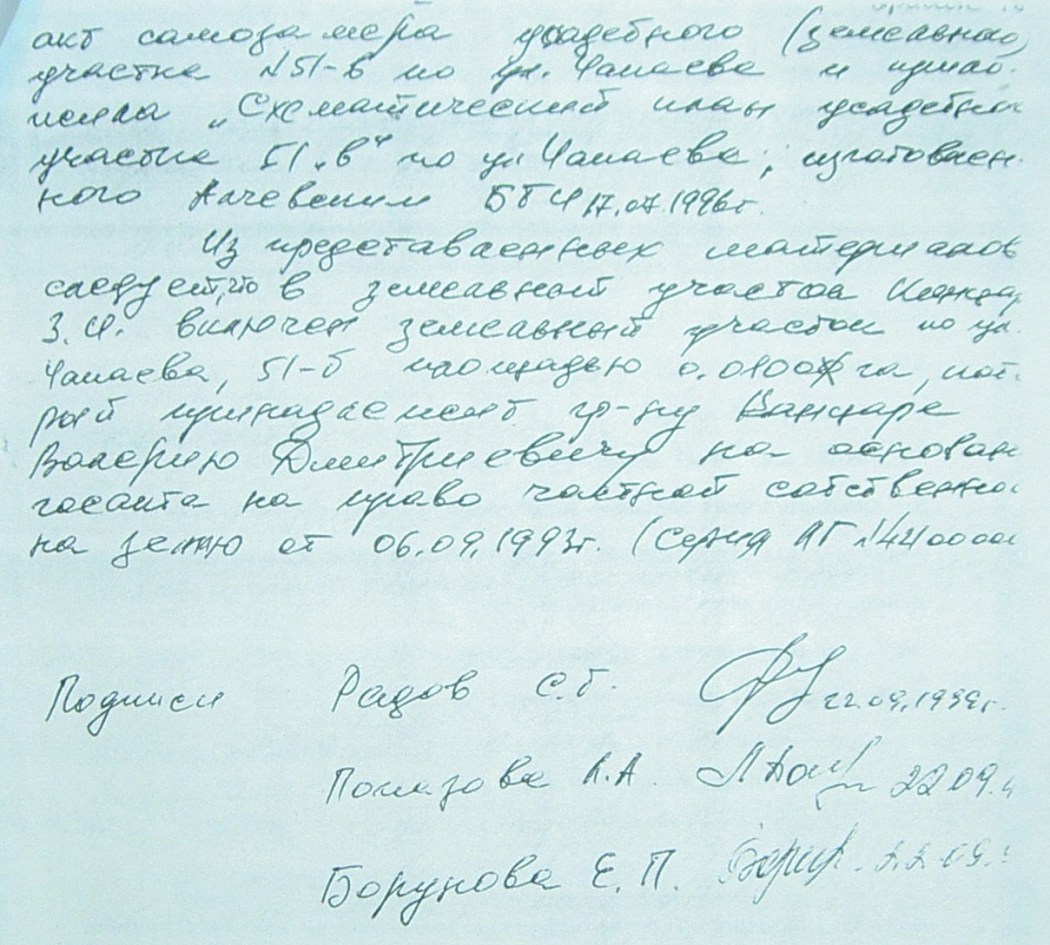 акт самозамера усадебного (земельного)
участка №51-в по ул. Чапаева и
"Схематический план усадебн
участка 51 "в" по ул Чапаева, изготовлен-
ного Алчевским БТИ 17.07.1996г.
Из представленных материалов
следует, что в земельный участок
З.И. включен земельный участок по ул.
Чапаева, 51-б площадью 0.0100 га, кот-
рый принадлежит гр-ну Ванцаре
Валерию Дмитриевичу на основан
госакта на право частной собственно
на землю от 06.09.1993г. (Серия
Подписи Радов С.Б. 22.09.1999г.
Помазова Л.А. 22 09.
Борунова Е. П. 22.09.